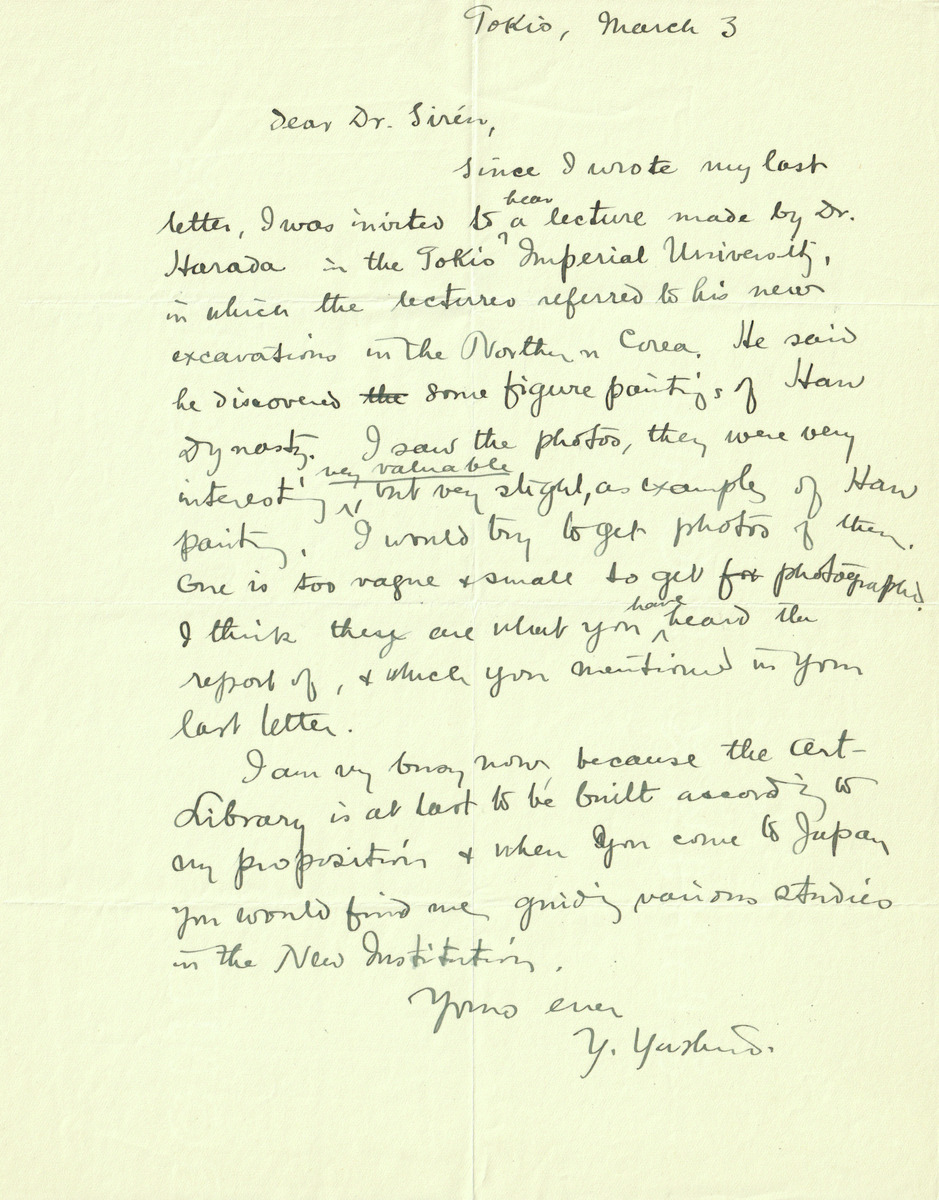 Tokio, March 3
Dear Dr. Sirén,
Since I wrote my last
letter, I was invited to hear a lecture made by Dr.
Harada in the Tokio Imperial University,
in which the lecturer referred to his new
excavations in the Northern Corea. He said
he discovered the some figure paintings of Han
Dynasty. I saw the photos, they were very
interesting, very valuable, but very slight, as examples of Han
painting. I would try to get photos of them.
One is too vague & small to get for photographed.
I think these are what you have heard the
report of, & which you mentioned in your
last letter.
I am very busy now, because the Art-
Library is at last to be built according to
my proposition & when you come to Japan
you would find me guiding various studies
in the New Institution.
Yours ever
Y. Yashiro.